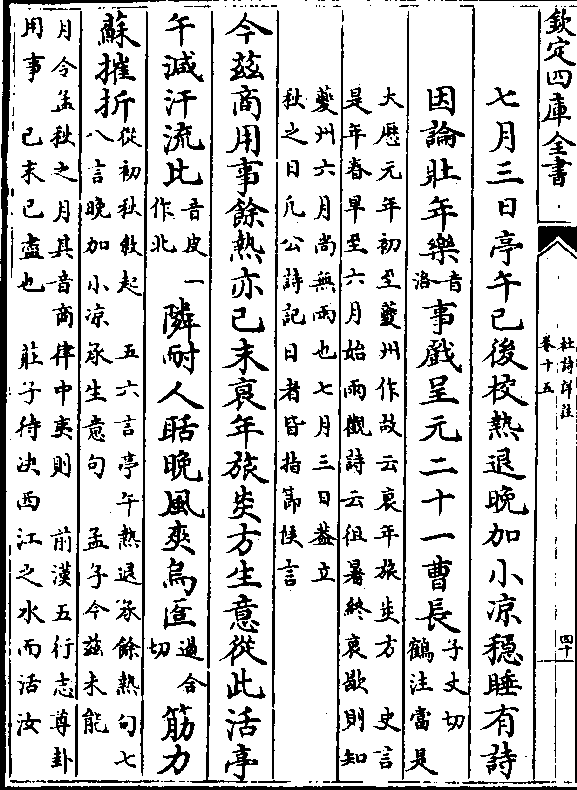 欽定四庫全書
杜詩詳註
卷十五
四十
七月三日亭午已後校熱退晚加小凉穩睡有詩
因論壯年樂音洛事戲呈元二十一曹長子丈切 鶴注當是
大厯元年初至夔州作故云衰年旅炎方 史言
是年春旱至六月始雨觀詩云徂暑終衰歇則知
夔州六月尚無雨也七月三日葢立
秋之日凡公詩記日者皆指節候言
今兹商用事餘熱亦已末衰年旅炎方生意從此活亭
午減汗流比音皮一作北隣耐人聒晚風爽烏匼過合切筋力
蘇摧折從初秋敘起 五六言亭午熱退承餘熱句七
八言晚加小凉承生意句 孟子今兹未能
月令孟秋之月其音商律中夷則 前漢五行志尊卦
用事 已末已盡也 莊子待決西江之水而活汝